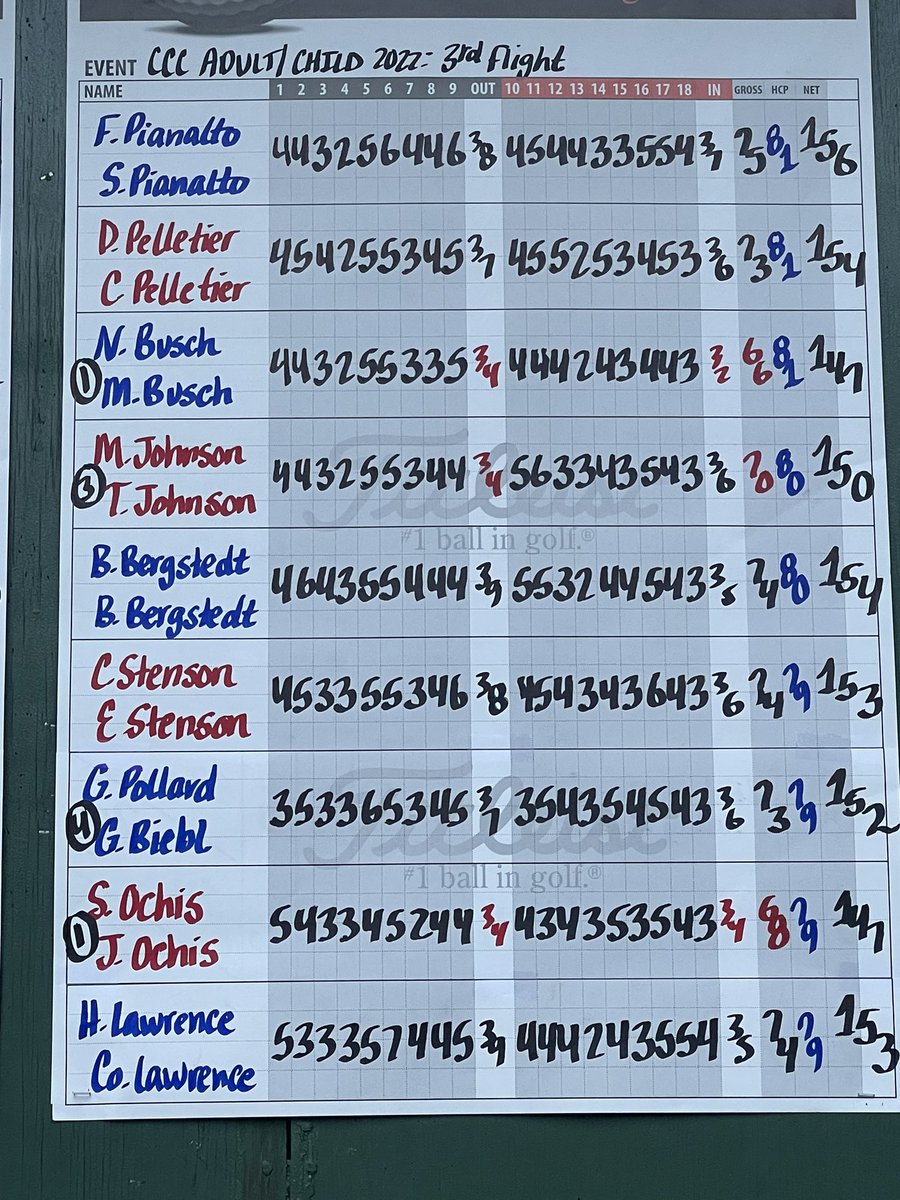 EVENT CCC ADULT/CHILD 2022: 3rd Flight
NAME 1 2 3 4 5 6 7 8 9 OUT 10 11 12 13 14 15 16 17 18 IN GROSS HCP NET
F. Pianalto
4 4 3 2 5 6 4 4 6 38 4 5 4 4 3 3 5 5 4 37 75 81 156
S. Pianalto
D. Pelletier
4 5 4 2 5 5 3 4 5 37 4 5 5 2 5 3 4 5 3 36 73 81 154
C Pelletier
N. Busch
4 4 3 2 5 5 3 3 5 34 4 4 4 2 4 3 4 4 3 32 66 81 147
1 M. Busch
M. Johnson
4 4 3 2 5 5 3 4 4 34 5 6 3 3 4 3 5 4 3 36 70 80 150
3 T. Johnson
Titleist
#1 ball in golf.®
B. Bergstedt
4 6 4 3 5 5 4 4 4 39 5 5 3 2 4 4 5 4 3 35 74 80 154
B. Bergstedt
C Stenson
4 5 3 3 5 5 3 4 6 38 4 5 4 3 4 3 6 4 3 36 74 79 153
E Stenson
G. Pollard
3 5 3 3 6 5 3 4 5 37 3 5 4 3 5 4 5 4 3 36 73 79 152
4 G. Biebl
Titleist
#1 ball in golf.®
S. Ochis
5 4 3 3 4 5 2 4 4 34 4 3 4 3 5 3 5 4 3 34 68 79 147
1 J. Ochis
H. Lawrence
5 3 3 3 5 7 4 4 5 39 4 4 4 2 4 3 5 5 4 35 74 79 153
Co. Lawrence